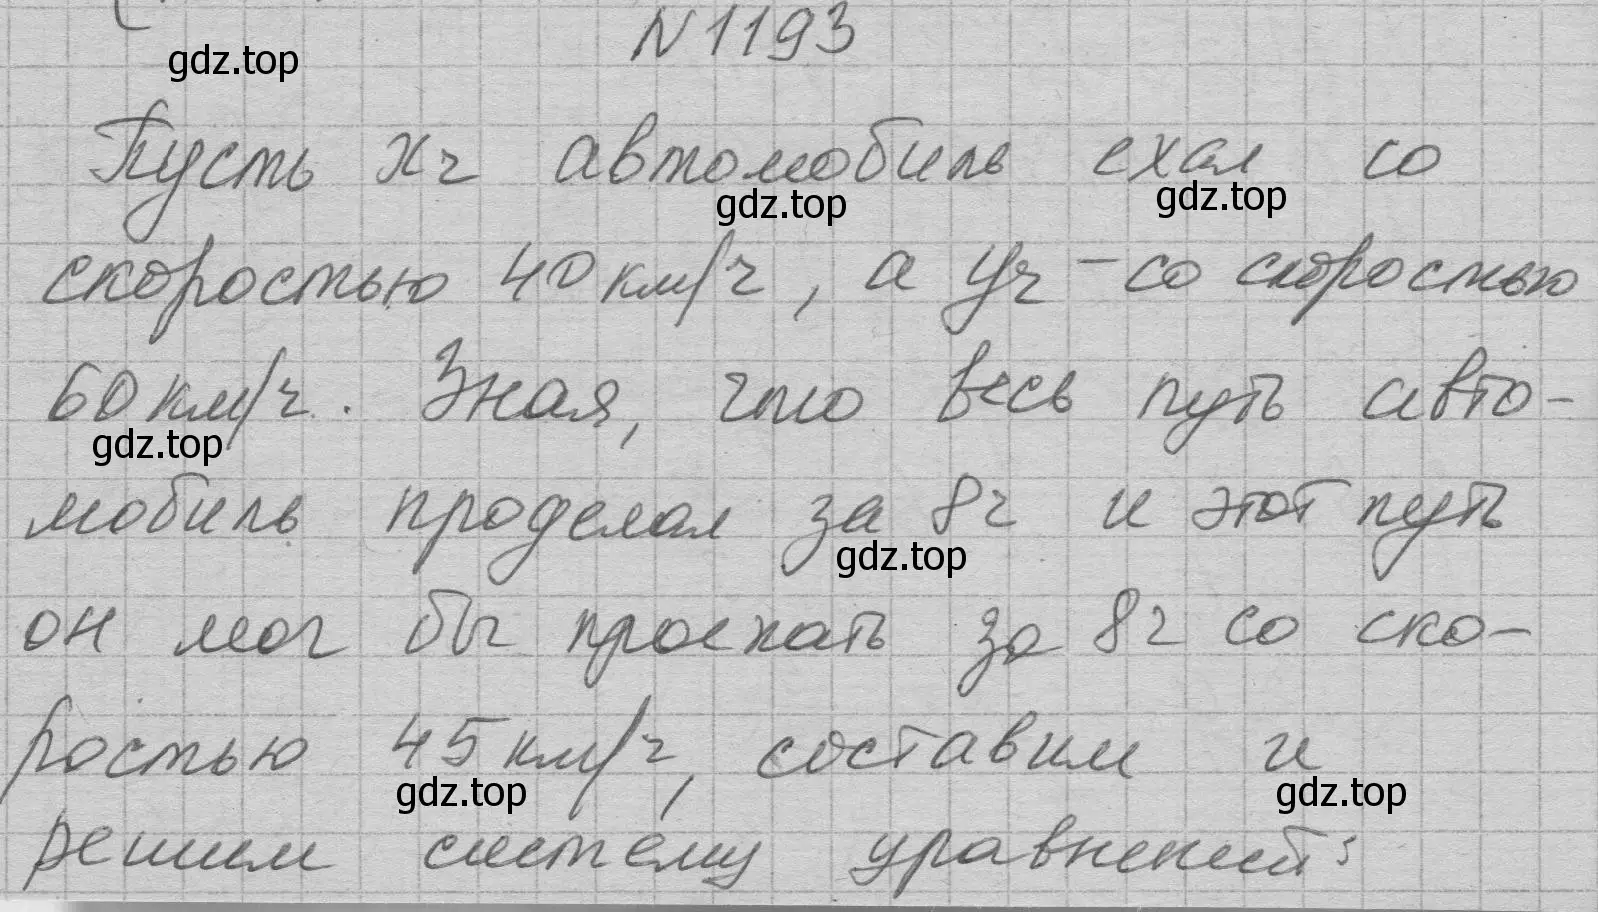 N1193
gdz.top
Пусть x ч автомобиль ехал со
gdz.top gdz.top
скоростью 40 км/ч, а y ч - со скоростью
60 км/ч. Зная, что весь путь авто-
gdz.top
мобиль проделал за 8 ч и этот путь
gdz.top
он мог бы проехать за 8 ч со ско-
ростью 45 км/ч, составим и
gdz.top gdz.top
решим систему уравнений: